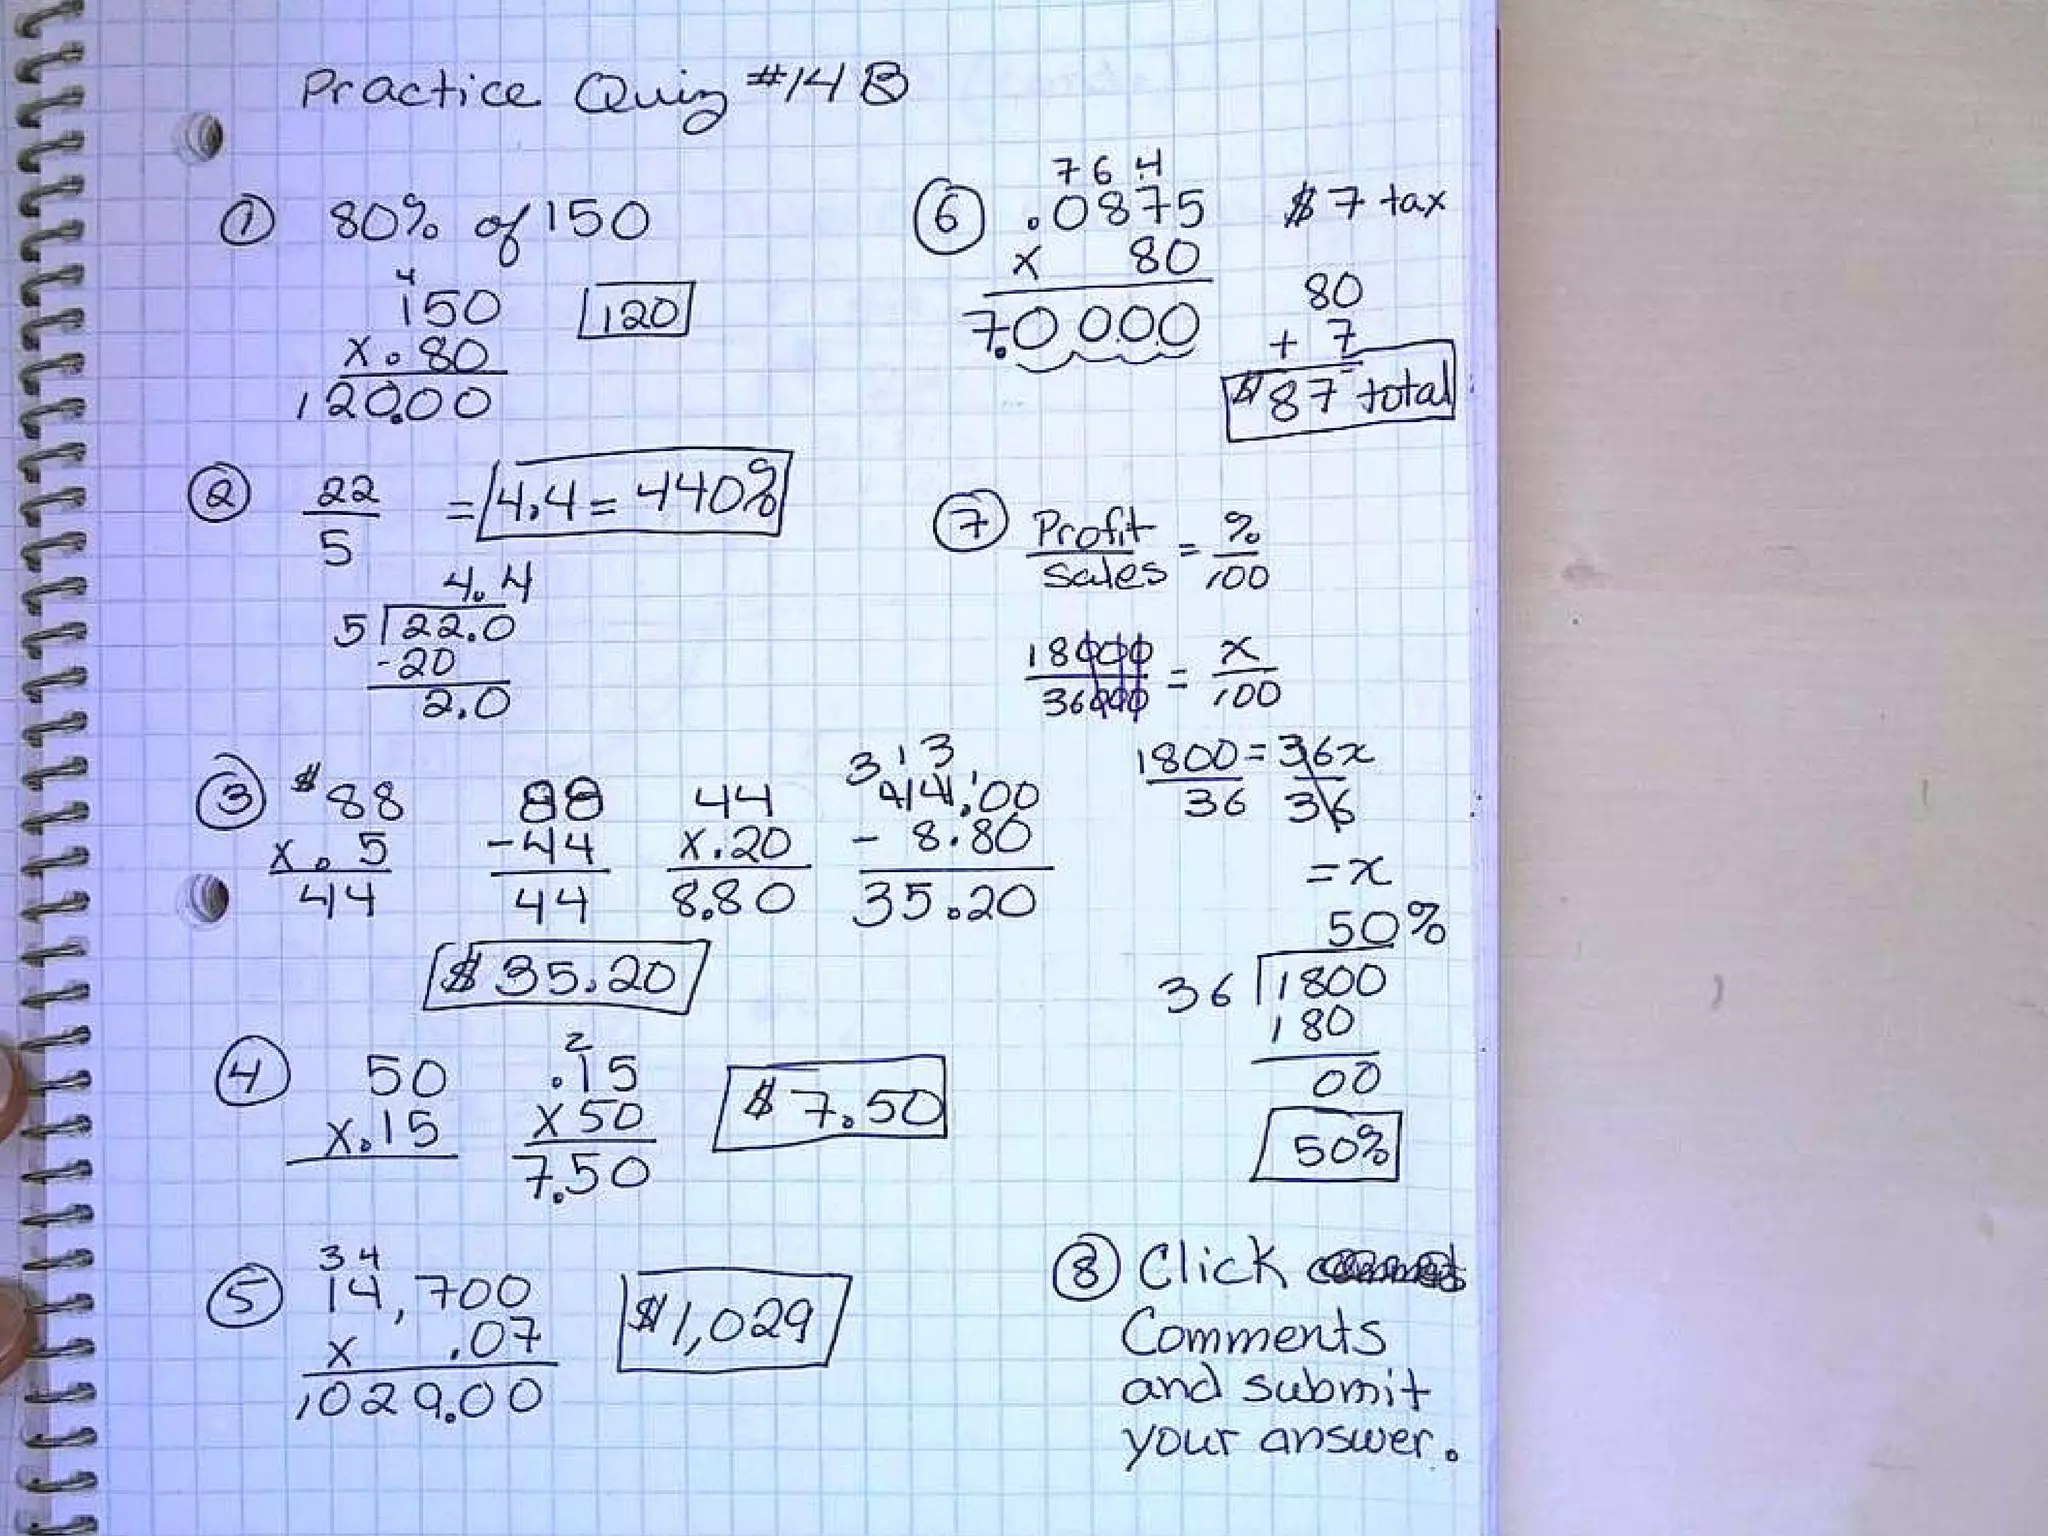 Practice Quiz #14B
① 80% of 150
4
150
x.80
120.00
120
② 22
5
= 4.4 = 440%
4.4
5 22.0
-20
2.0
③ $88
x.5
44
88
-44
44
44
x.20
8.80
3 13 1
44.00
- 8.80
35.20
$35.20
④ 50
x.15
2
.15
x50
7.50
$7.50
3 4
⑤ 14,700
x .07
1029.00
$1,029
7 6 4
⑥ .0875
x 80
7.0000
$7 tax
80
+ 7
$87 total
⑦ Profit = %
Sales 100
18000 = x
36000 100
1800 = 36x
36 36
= x
50%
36 1800
180
00
50%
⑧ Click
Comments
and submit
your answer.